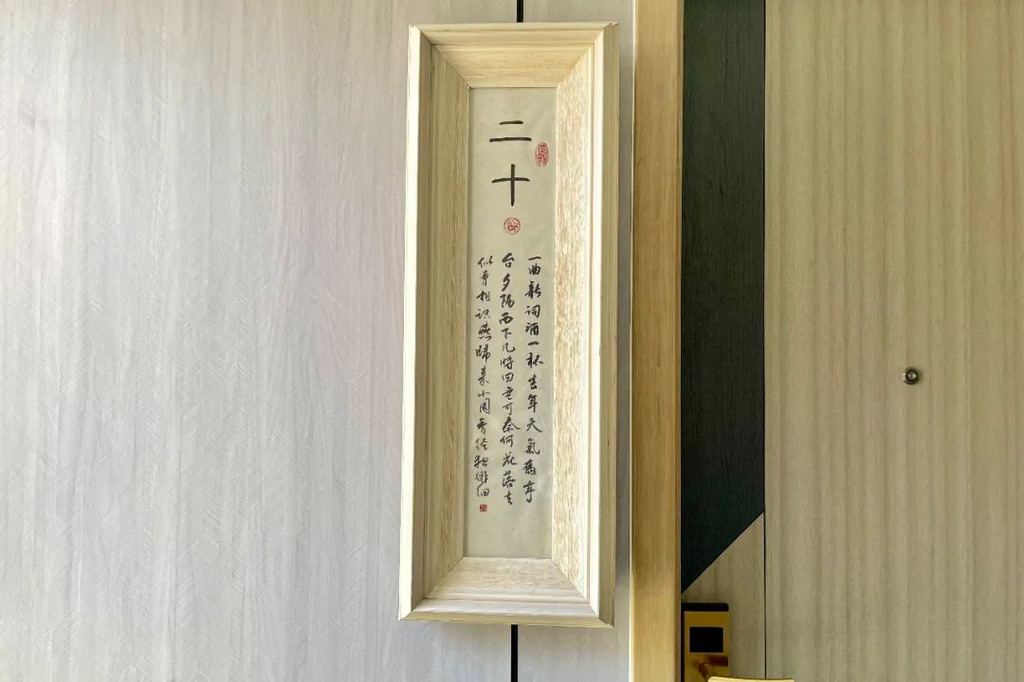 二十
一曲新词酒一杯去年天氣舊亭
台夕陽西下几時回無可奈何花落去
似曾相识燕歸来小园香径獨徘徊